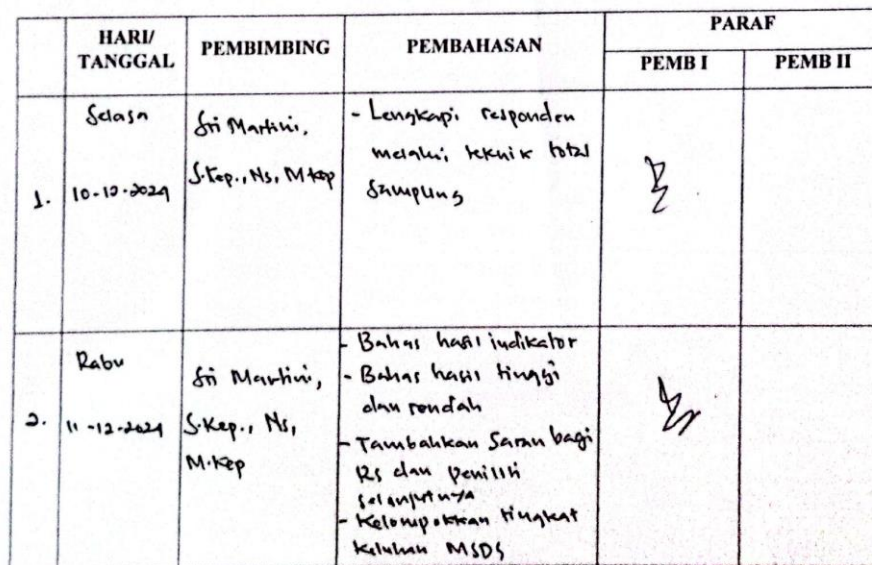 HARI/
TANGGAL
PEMBIMBING
PEMBAHASAN
PARAF
PEMB I
PEMB II
1.
Selasa
10-12-2024
Sri Martini,
S.Kep., Ns, M.Kep
- Lengkapi responden
melalui teknik total
sampling
2.
Rabu
11-12-2024
Sri Martini,
S.Kep., Ns,
M.Kep
- Bahas hasil indikator
- Bahas hasil tinggi
dan rendah
- Tambahkan saran bagi
RS dan peneliti
selanjutnya
- Kelompokkan tingkat
keluhan MSDS